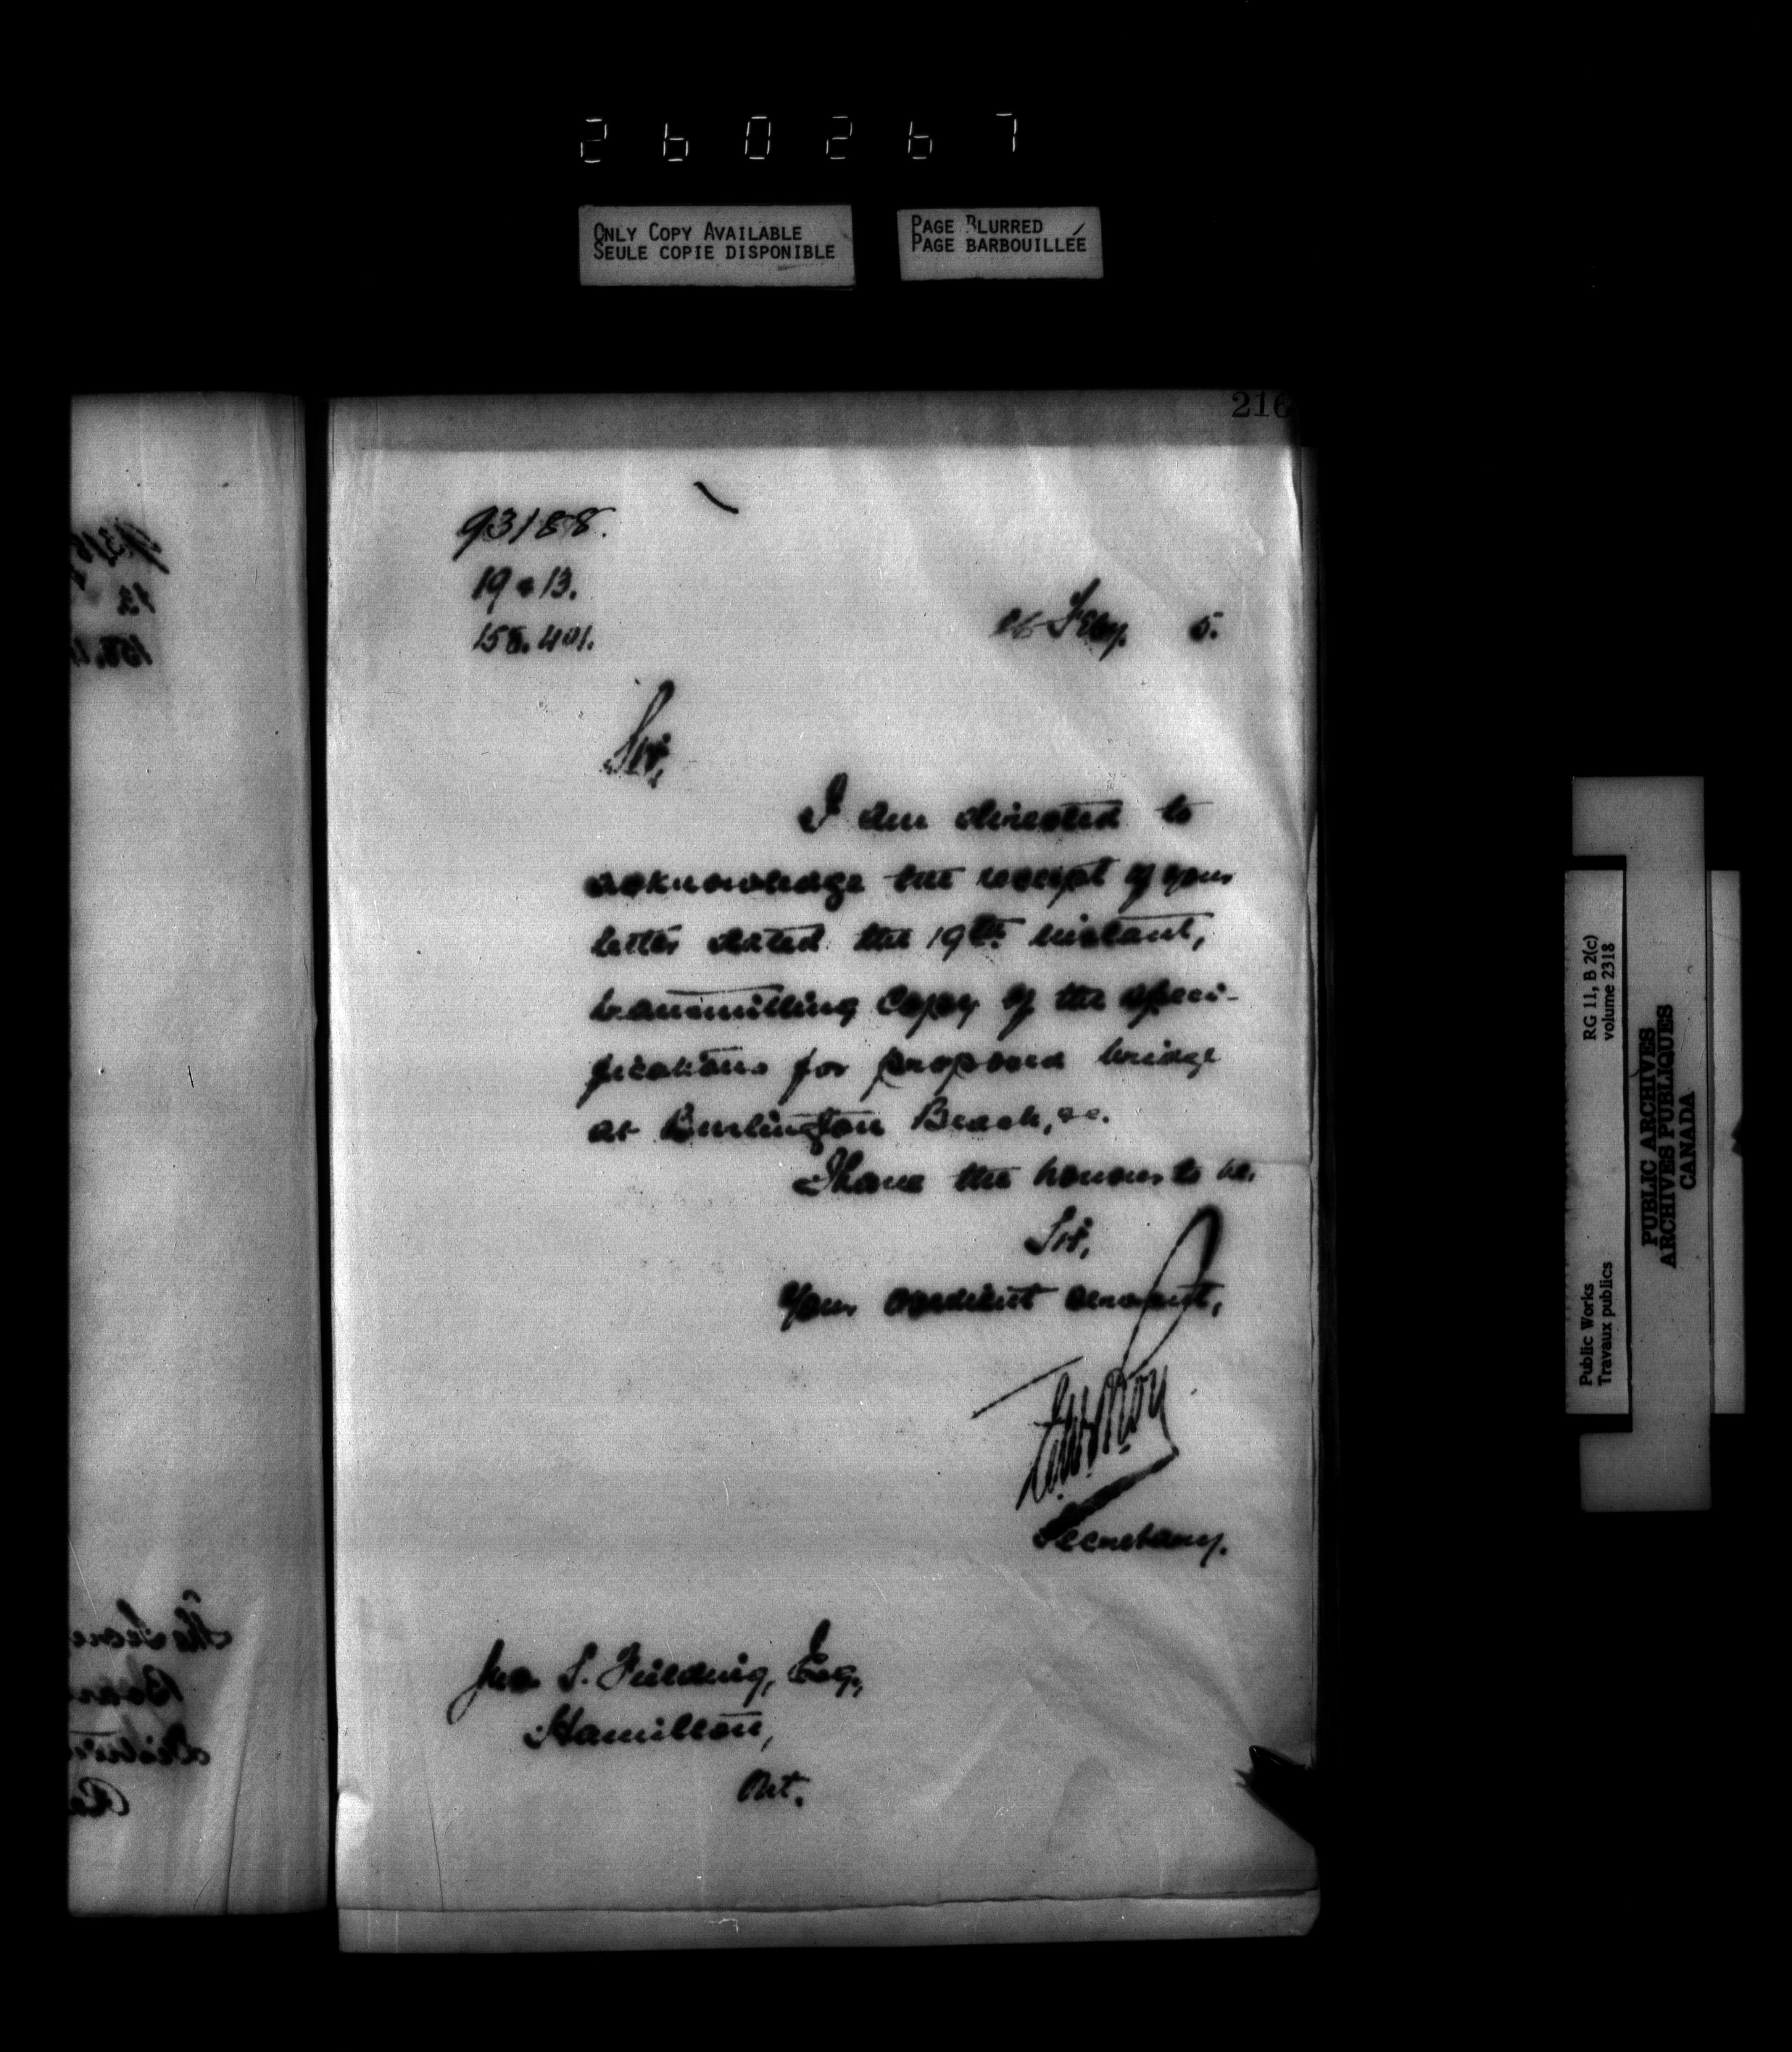 260267
ONLY COPY AVAILABLE
SEULE COPIE DISPONIBLE
PAGE BLURRED
PAGE BARBOUILLÉE
216
93188.
19 & 13.
158.401.
26 Feby. 5.
Sir,
I am directed to
acknowledge the receipt of your
letter dated the 19th instant,
transmitting copy of the speci-
fications for proposed bridge
at Burlington Beach, &c.
I have the honour to be,
Sir,
Your obedient servant,
Secretary.
Jno. S. Fielding, Esq.,
Hamilton,
Ont.
RG 11, B 2(c)
volume 2318
Public Works
Travaux publics
PUBLIC ARCHIVES
ARCHIVES PUBLIQUES
CANADA